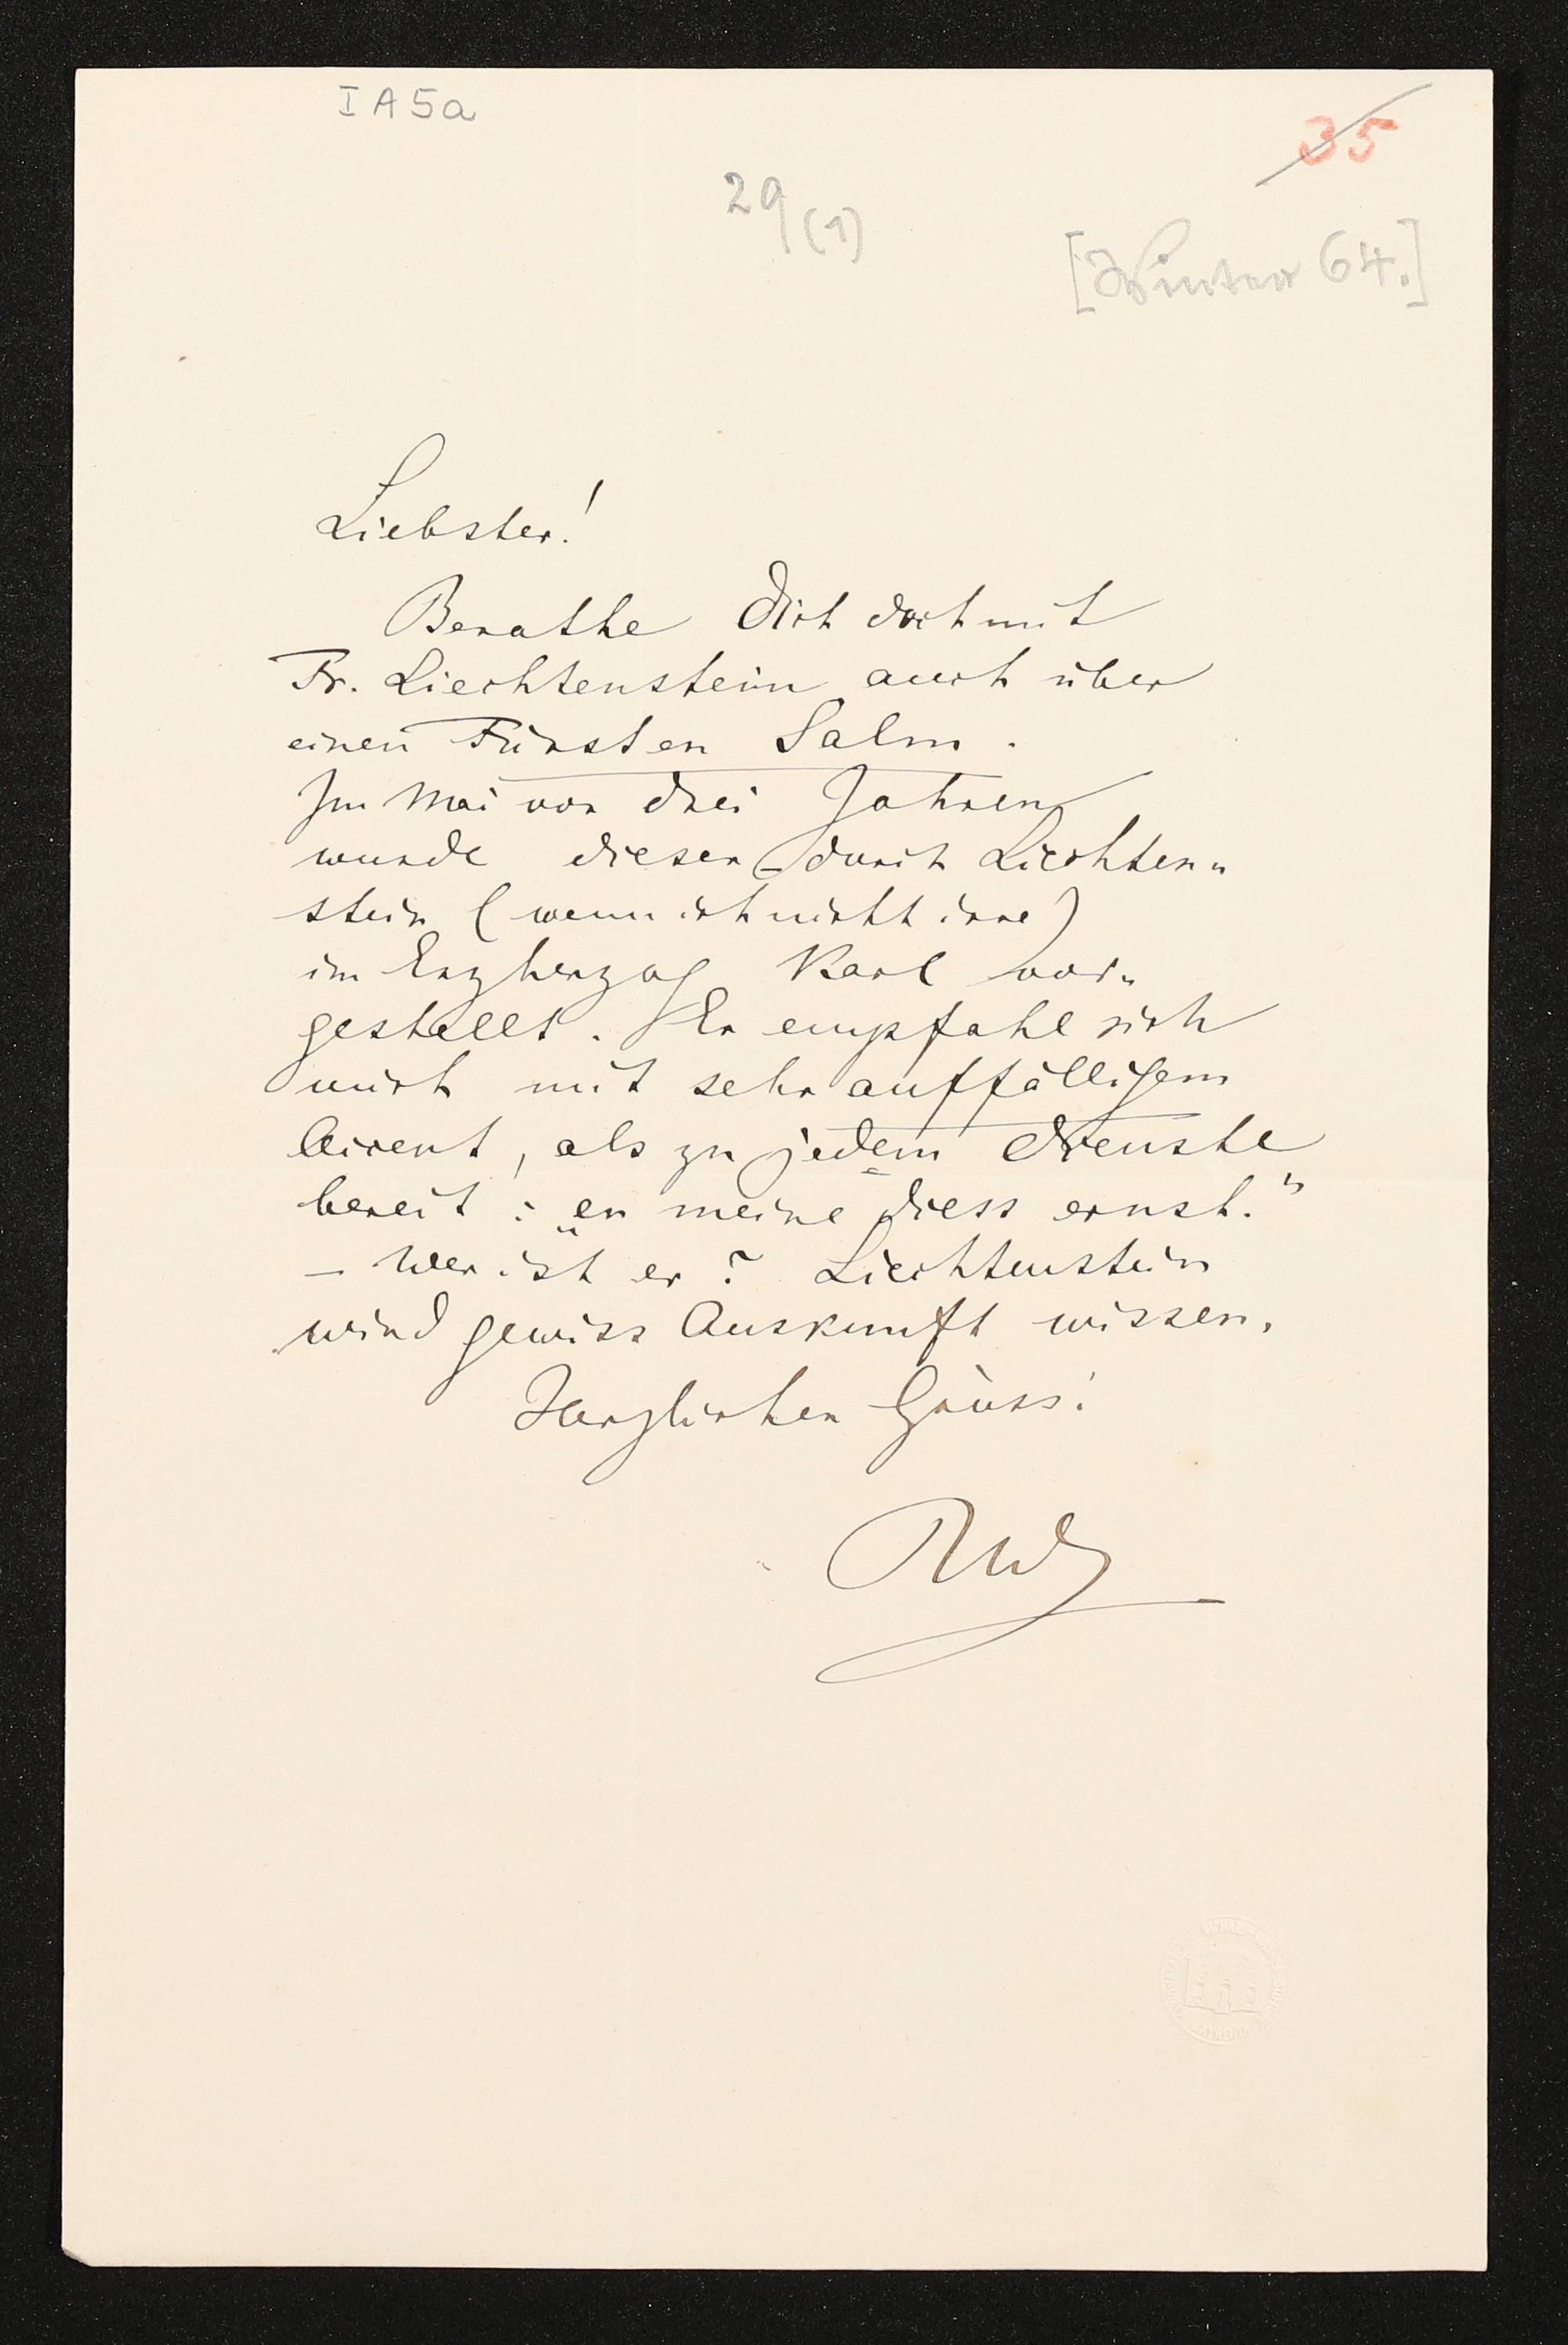 I A 5a
35
29 (1)
[Winter 64.]
Liebster!
Berathe Dich doch mit
Fr. Liechtenstein auch über
einen Fürsten Salm.
Im Mai vor drei Jahren
wurde dieser durch Liechten-
stein (wenn ich nicht irre)
im Erzherzog Karl vor-
gestellt. Er empfahl sich
mit sehr auffälligem
Accent, als zu jedem Dienste
bereit: „er meine diess ernst.“
– Wer ist er? Liechtenstein
wird gewiss Auskunft wissen.
Herzlichen Gruss!
RW